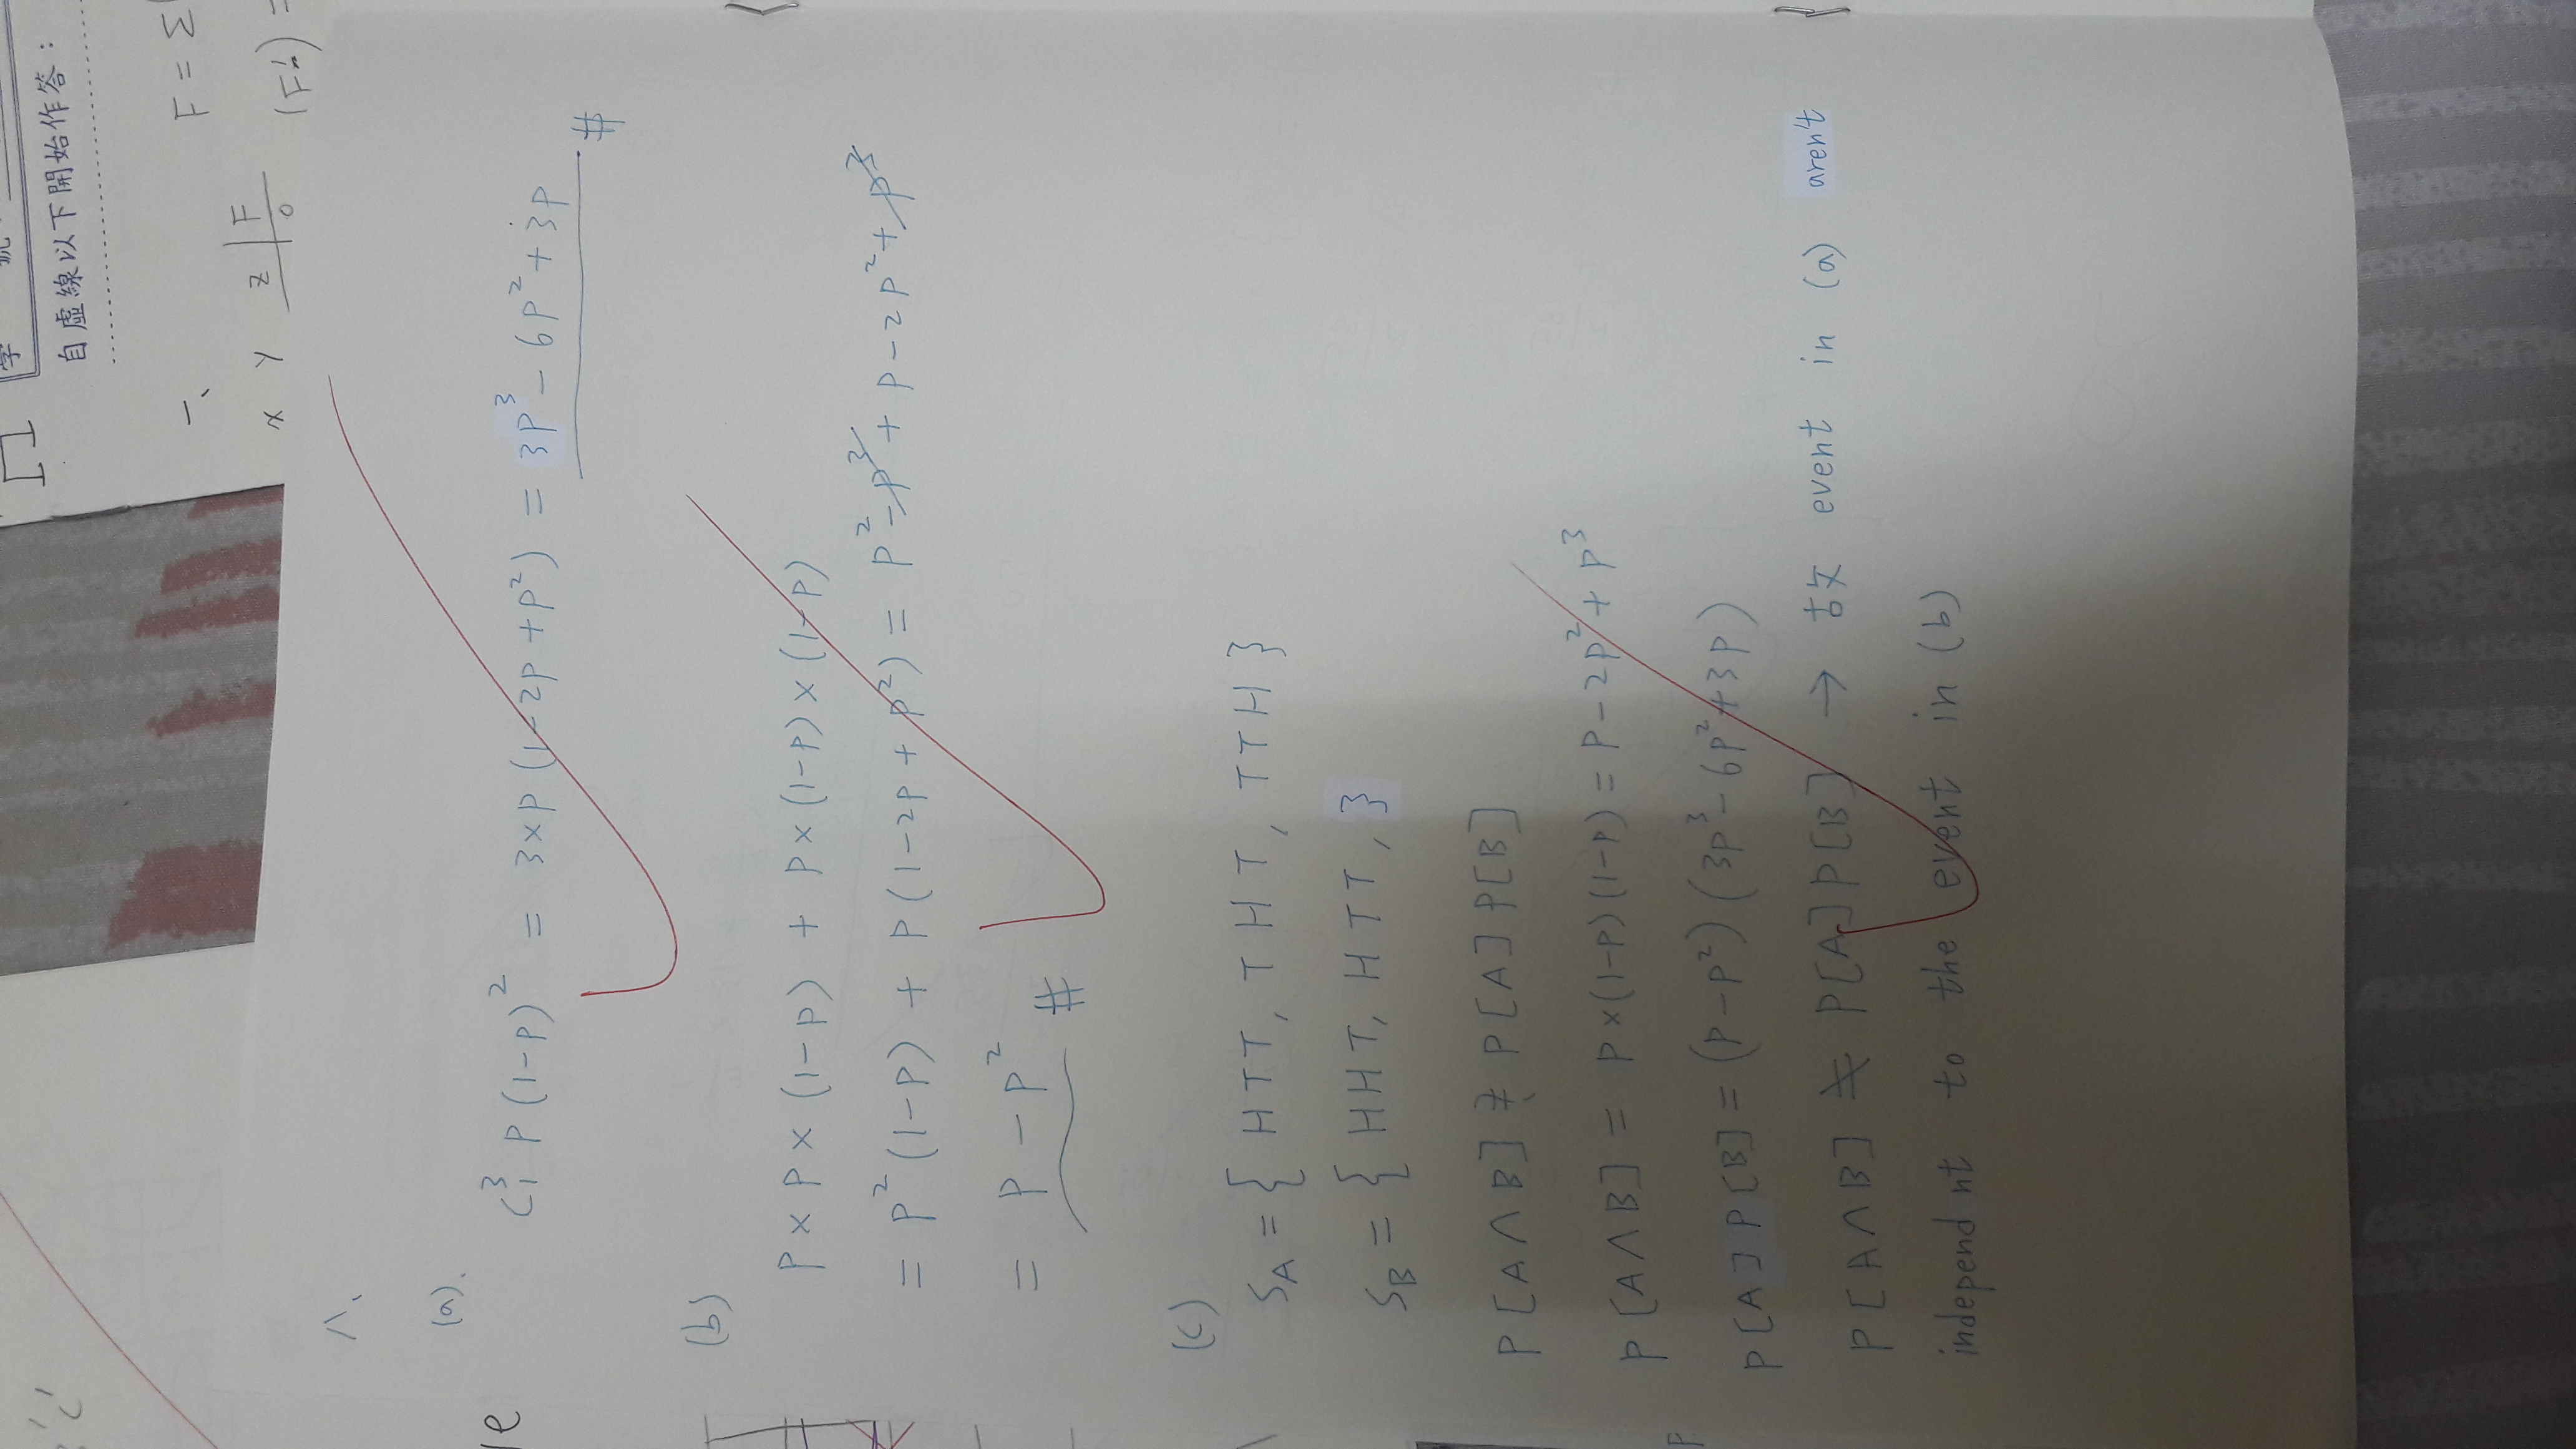 自虛線以下開始作答：
一、
F = Σ
x y z | F
0
八、
(a).
C³₁ P (1-P)² = 3×P (1-2P+P²) = 3P³ - 6P² + 3P #
(b)
P × P × (1-P) + P×(1-P)×(1-P)
= P² (1-P) + P (1-2P + P²) = P² - P³ + P - 2P² + P³
= P - P² #
(c)
S_A = { HTT, THT, TTH }
S_B = { HHT, HTT, }
P[A∩B] ≟ P[A] P[B]
P[A∩B] = P×(1-P)(1-P) = P - 2P² + P³
P[A] P[B] = (P-P²) (3P³ - 6P² + 3P)
P[A∩B] ≠ P[A] P[B] → 故 event in (a) aren't
independ nt to the event in (b)